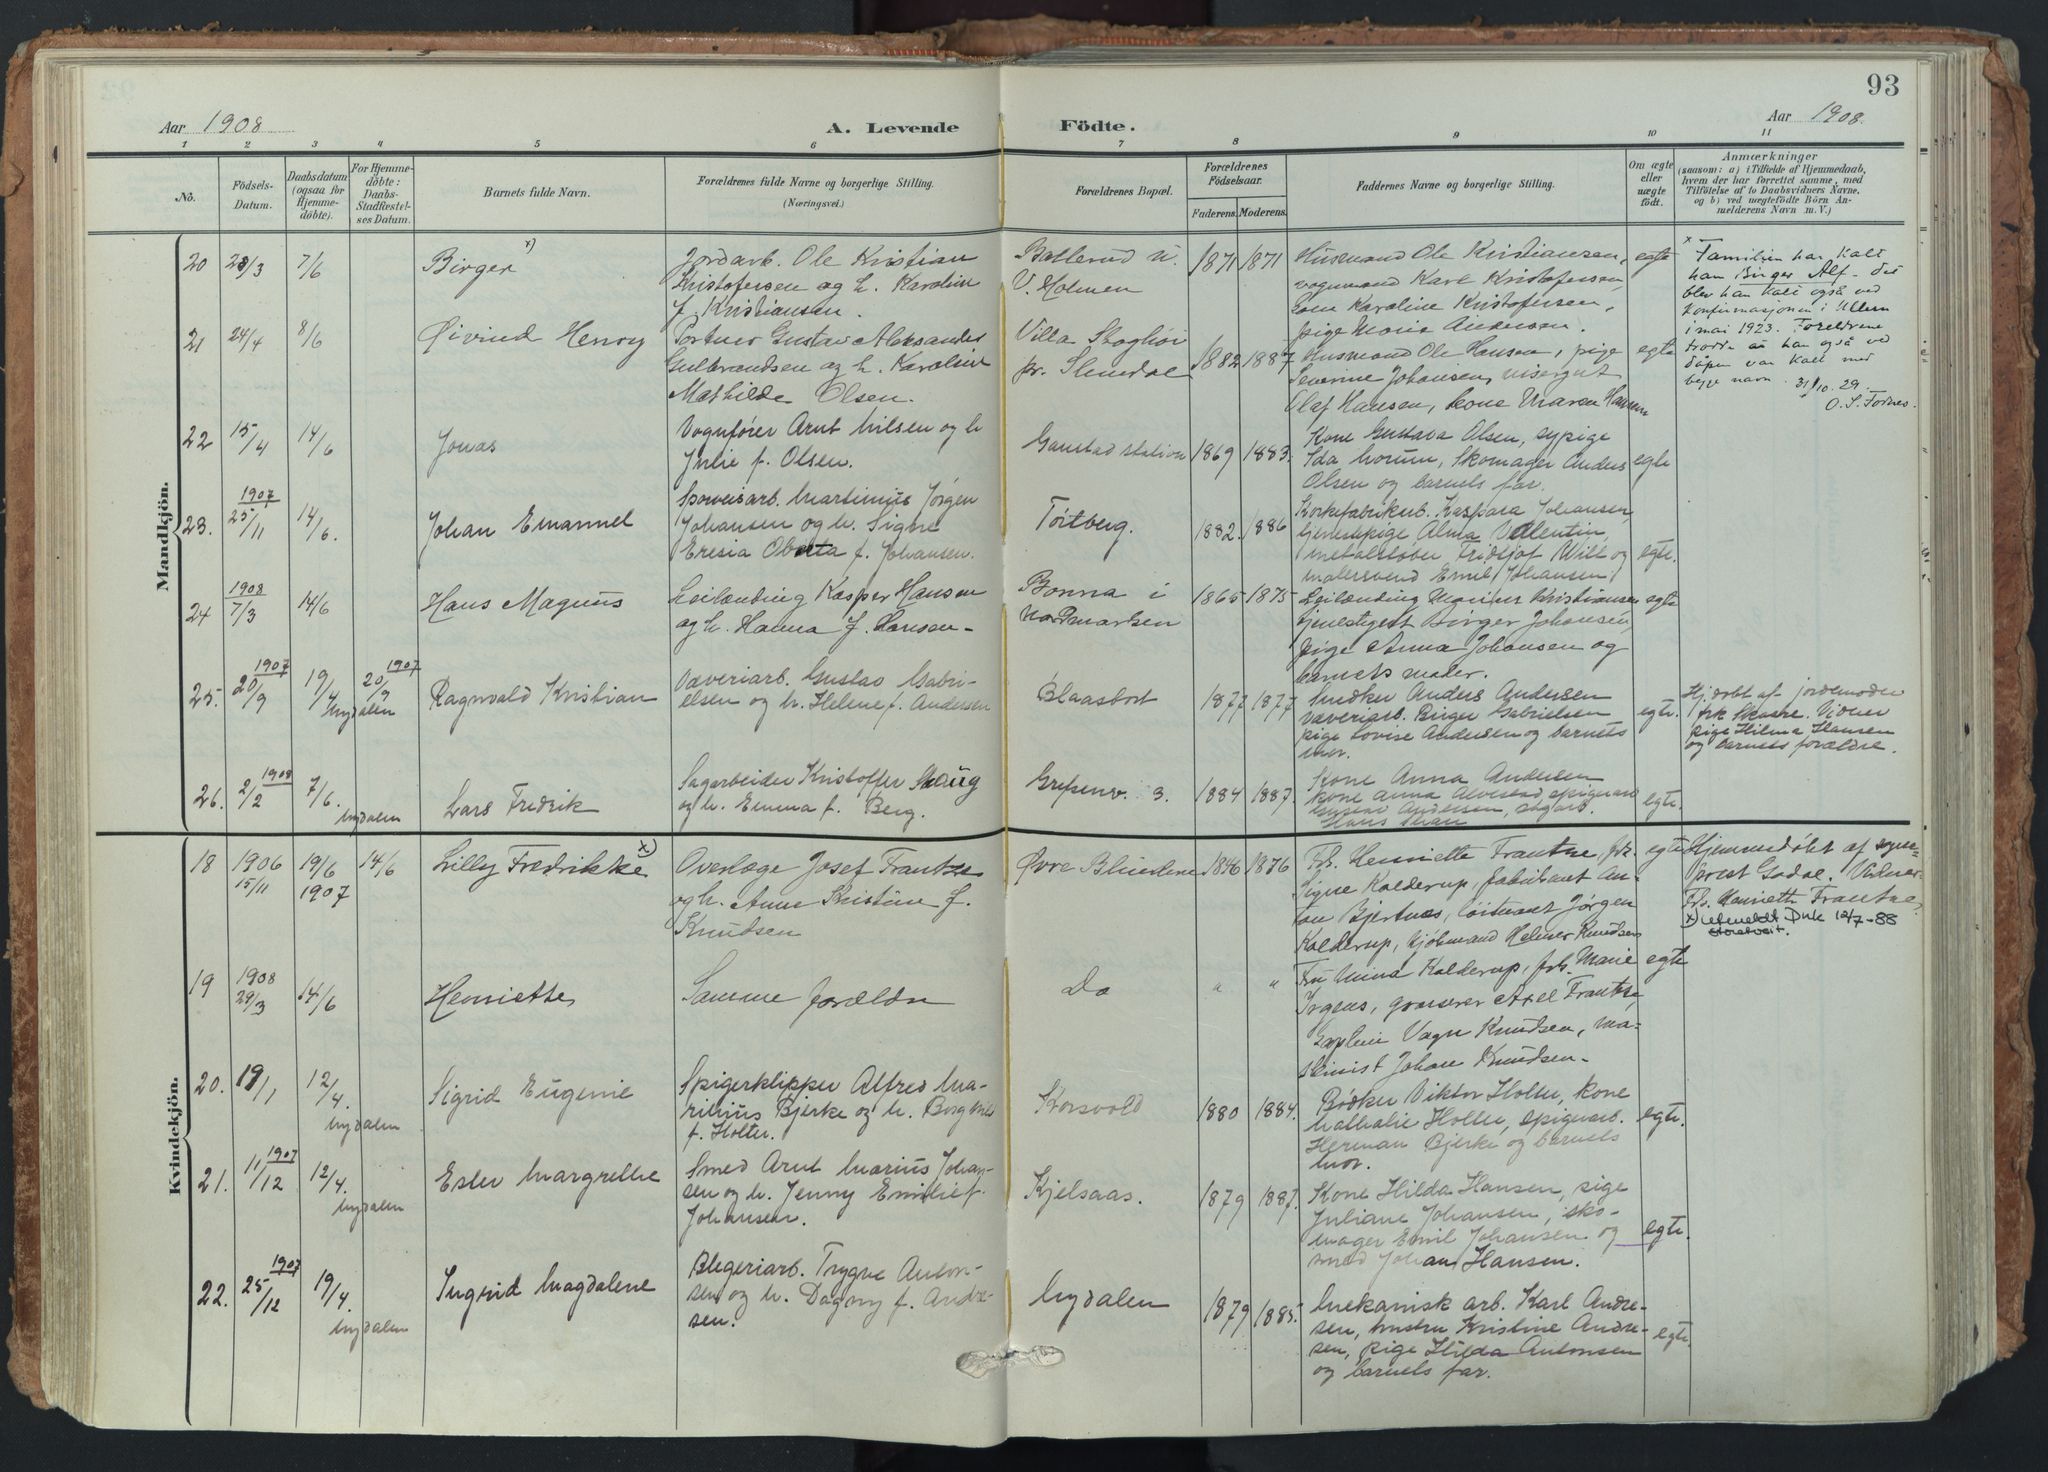 93
Aar 1908
A. Levende Födte.
Aar 1908.
1 2 3 4 5 6 7 8 9 10 11
No.
Födsels-Datum.
Daabsdatum (ogsaa for Hjemme-döbte).
For Hjemme-döbte: Daabs-Stad
Barnets fulde Navn.
Forældrenes fulde Navne og borgerlige Stilling.
(Næringsvei.)
Forældrenes Bopæl.
Forældrenes Födselsaar.
Faderens. Moderens.
Faddernes Navne og borgerlige Stilling.
Om ægte eller uægte födt.
Anmærkninger
(saasom: a) i Tilfælde af Hjemmedaab,
hvem der har forrettet samme, med
Tilföielse af to Daabsvidners Navne,
og b) ved uægtefödte Börn An-
melderens Navn m. V.)
Mandkjön.
20 28/3 7/6 Birger x)
Jordarb. Ole Kristian
Kristofersen og h. Karoline
f. Kristiansen.
Ballerud u.
V. Holmen
1871 1871
Husmand Ole Kristiansen,
vogumand Karl Kristofersen
Kone Karoline Kristofersen,
pige Marie Andersen.
egte
x Familien har kalt
ham Birger Alf - det
blev han kalt også ved
konfirmasjonen i Ullern
i mai 1923. Foreldrene
trodde at han også ved
dåpen var kalt med
begge navn. 31/10. 29.
O. S. Fornes.
21 24/4 8/6 Øivind Henry
Portner Gustav Aleksander
Gulbrandsen og h. Karoline
Mathilde Olsen.
Villa
pr. Slemdal
1882 1887
Husmand Ole Hansen, pige
Severine Johansen, visergut
Olaf Hansen, kone Maren Hansen
egte
22 15/4 14/6 Jonas
Vognfører Arnt Nilsen og h
Julie f. Olsen.
Gaustad station
1869 1883.
Kone Gustava Olsen, sypige
Ida Norum, Skomager Anders
Olsen og barnets far.
egte
23. 1907 25/11 14/6. Johan Emanuel
Sporveisarb. Martinius Jørgen
Johansen og h. Signe
Eresia Oberta f. Johansen.
Tørtberg.
1882. 1886
Korkefabrikarb. Kaspara Johansen,
tjenestepige Alma Valentin,
metalstøber Fridtjof Will og
malersvend Emil Johansen
egte.
24 1908 7/3 14/6 Hans Magnus
Leilænding Kasper Hansen
og h. Hanna f. Hansen-
Bonna i
Nordmarken
1865 1875
Leilænding Marius Kristiansen
tjenestegut Birger Johansen,
pige Anna Johansen og
barnets moder.
egte
25. 1907 20/9 19/1 Nydalen 1907 20/9 Ragnvald Kristian
Væveriarb. Gustav Gabri-
elsen og h. Helene f. Andersen
Blaasbort
1877 1877
Snedker Anders Andersen
væveriarb. Birger Gabrielsen
pige Lovise Andersen og barnets
mor.
egte.
Hj. døbt af jordemoder
frk Skaare. Vidner
pige Hilma Hansen
og barnets forældre.
26. 1908 2/2 7/6. Nydalen Lars Fredrik
Sagarbeider Kristoffer Skaug
og h. Emma f. Berg.
Grefsenv. 3.
1884 1887.
Kone Anna Andersen
kone Anna Alvestad, spigerarb
Gustav Andersen, sagarb.
Hans
egte.
Kvindekjön.
18 1906 15/11 19/6 1907 14/6 Lilly Fredrikke x)
Overlæge Josef Frantze
og h. Anne Kristine f.
Knudsen
Øvre Blindern
1846 1876
Frk. Henriette Frantze, frk.
Signe Kolderup, fabrikant An-
ton Bjertnæs, løitnant Jørgen
Kolderup, sjømand Helmer Knudsen
egte
Hjemmedøbt af sogne-
prest Godal. Vidner
Frk. Henriette Frantze
x) utmeldt Dnk 12/7-88
Storetveit.
19 1908 29/3 14/6 Henriette
Samme forældre
Do
" "
Fru Mina Kolderup, frk. Marie
Irgens, grosserer Axel Frantze,
kaptein Vagn Knudsen, ma-
skinist Johan Knudsen.
egte
20. 19/1 12/4. Nydalen Sigrid Eugenie
Spigerklipper Alfred Ma-
rilius Bjerke og h. Borghild
f. Holter.
Korsvold
1880 1884.
Bødker Viktor Holter, kone
Nathalie Holter, spigerarb.
Herman Bjerke og barnets
mor.
egte.
21. 1907 11/12 12/4. Nydalen Ester Margrethe
Smed Arnt Marius Johan-
sen og h. Jenny Emilie f.
Johansen.
Kjelsaas.
1879 1887.
Kone Hilda Hansen, pige
Juliane Johansen, sko-
mager Emil Johansen og
smed Johan Hansen.
egte.
22. 1907 25/12 19/4. Nydalen Ingrid Magdalene
Blegeriarb. Trygve Anton-
sen og h. Dagny f. Andre-
sen.
Nydalen
1879 1885.
Mekanisk arb. Karl Andre-
sen, hustru Kristine Andre-
sen, pige Hilda Antonsen
og barnets far.
egte.